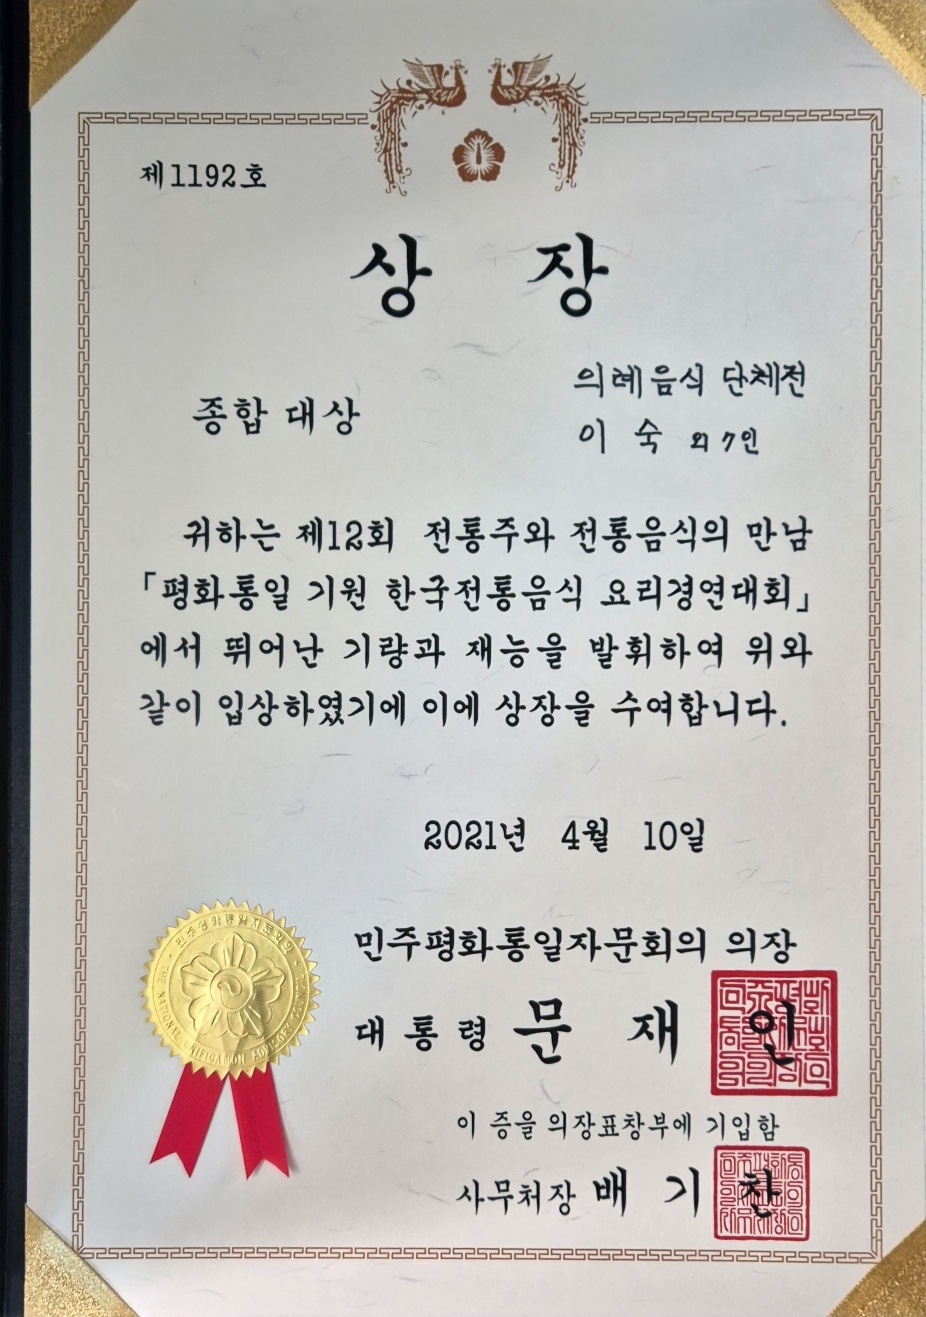 제1192호
상 장
의례음식 단체전
종합 대상
이 숙 외 7인
귀하는 제12회 전통주와 전통음식의 만남
「평화통일 기원 한국전통음식 요리경연대회」
에서 뛰어난 기량과 재능을 발휘하여 위와
같이 입상하였기에 이에 상장을 수여합니다.
2021년 4월 10일
민주평화통일자문회의 의장
대통령 문 재 인
이 증을 의장표창부에 기입함
사무처장 배 기 찬
민주평화통일자문회의
THE NATIONAL UNIFICATION ADVISORY